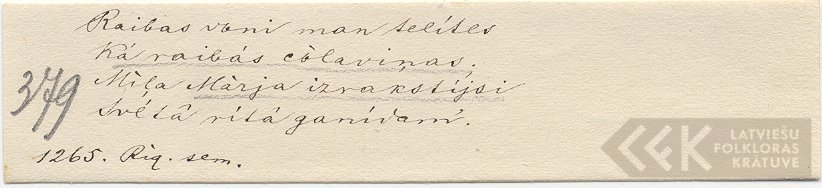 Raibas vōni man telites
Ká raibás cōlaviņas;
Mīļa Mārja izrakstījsi
Svētâ rītâ ganīdamˈ.
379
1265. Rig. sem.
LATVIEŠU
FOLKLORAS
KRĀTUVE
LFK